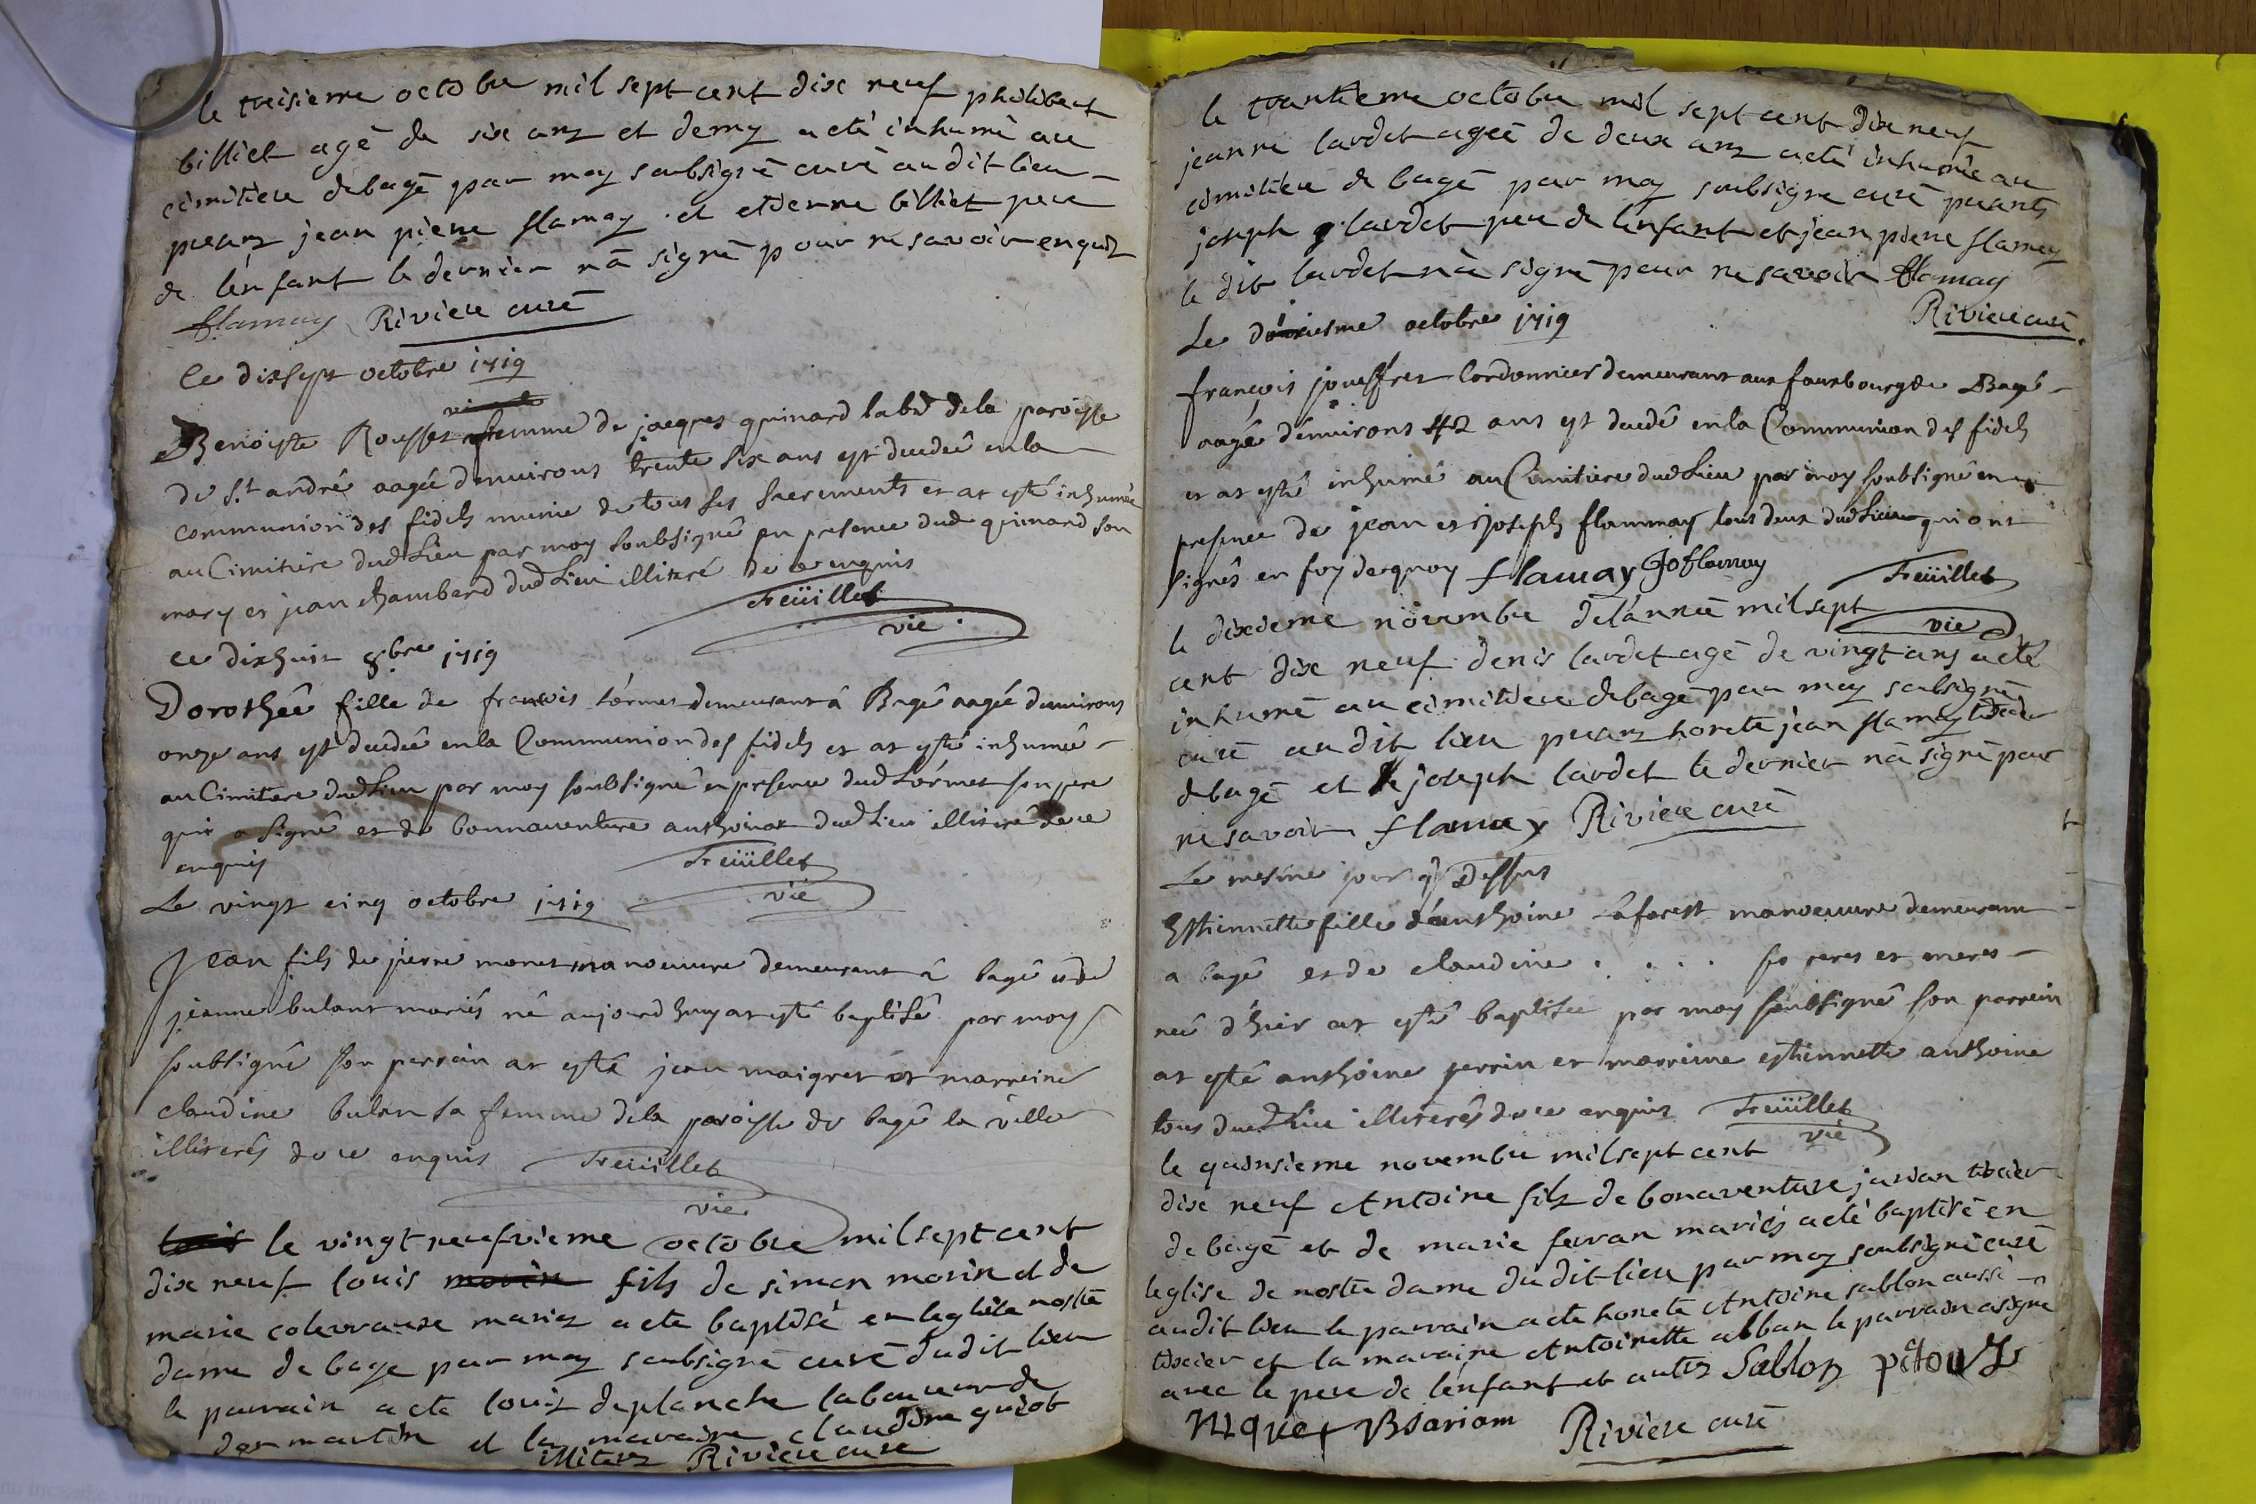 le treisieme octobre mil sept cent dix neuf philibert
billiet agé de six anz et demy a eté inhumé au
cimitiere de bagé par moy soubsigné curé au dit lieu
pñans jean pierre flamay et etienne billiet pere
de l'enfant le dernier n'a signé pour ne savoir enquis
flamay Riviere curé
Ce dixsept octobre 1719
Benoiste Rousset femme de jacques guinard labr de la paroisse
de St andré aagée d'enuirons trente six ans est decedeé en la
communion des fidels munie de tous ses sacrements et at esté inhumée
au Cimitiere dud Lieu par moy soubsigné en presence dud guinard son
mary et jean chambard dud Lieu illiteré de ce enquis
Freüillet
vic
ce dixhuit 8bre 1719
Dorotheé fille de francois Lórmet demeurant á Bagé aagée d'enuirons
onze ans est decedeé en la Communion des fidels et at esté inhumeé
au Cimitiere dud Lieu par moy soubsigné en presence dud Lórmet son pere
qui a signé et de bonnauenture anthoinat dud Lieu illiteré de ce
enquis
Freüillet
vic
Le vingt cinq octobre 1719
Jean fils de pierre monet manoeuure demeurant á bagé et de
jeanne bulant mariés né aujourd huy at esté baptisé par moy
soubsigné son parrain at esté jean maigret et marreine
claudine bulan sa femme de la paroisse de bagé la ville
illiterés de ce enquis Freüillet
vic
le vingt neufvieme octobre mil sept cent
dix neuf louis fils de simon morin et de
marie colevrause mariez a eté baptisé en leglise nostre
dame de bage par moy soubsigné curé dudit lieu
le parrain a eté louis deplanche laboureur de
dommartin et la maraine claudine guiot
illiterz Riviere curé
le trantieme octobre mil sept cent dix neuf
jeanne lardet ageé de deux anz a eté inhumée au
cimitiere de bagé par moy soubsigné curé pñants
joseph lardet pere de l'enfant et jean pierre flamay
le dit lardet n'a signé pour ne savoir flamay
Riviere curé
Le octobre 1719
françois joueffret Cordonnier demeurant aux fauxbourg de Bagé
aagé d'enuirons 42 ans est decedé en la Communion des fidels
et at esté inhumé au Cimitiere dud Lieu par moy soubsigné en
presence de jean et joseph flammay tous deux dud Lieu qui ont
signés en foy de quoy flamay Jo flamay
Freüillet
vic
le dixieme novembre de l'année mil sept
cent dix neuf denis lardet agé de vingt ans a eté
inhumé au cimitiere de bagé par moy soubsigné
curé au dit lieu pñans honete jean flamay
de bagé et joseph lardet le dernier n'a signé pour
ne savoir flamay Riviere curé
Le mesme jour q Dessus
Estiennette fille d'anthoine laforest manoeuure demeurant
a bagé et de claudine . . . . . ses peres et meres
neé d'hier at esté baptisée par moy soubsigné son parrein
at esté anthoine perrin et marreine estiennette anthoine
tous dud Lieu illiterés de ce enquis Freüillet
vic
le quinsieme novembre mil sept cent
dix neuf Antoine filz de bonaventure tixier
de bagé et de marie ferran mariés a eté baptisé en
leglise de nostre dame du dit lieu par moy soubsigné curé
audit lieu le parrain a eté honete Antoine sablon aussi
tixier et la maraine Antoinette abban le parrain a signé
avec le pere de l'enfant et autrz Sablon
niquet Riviere curé